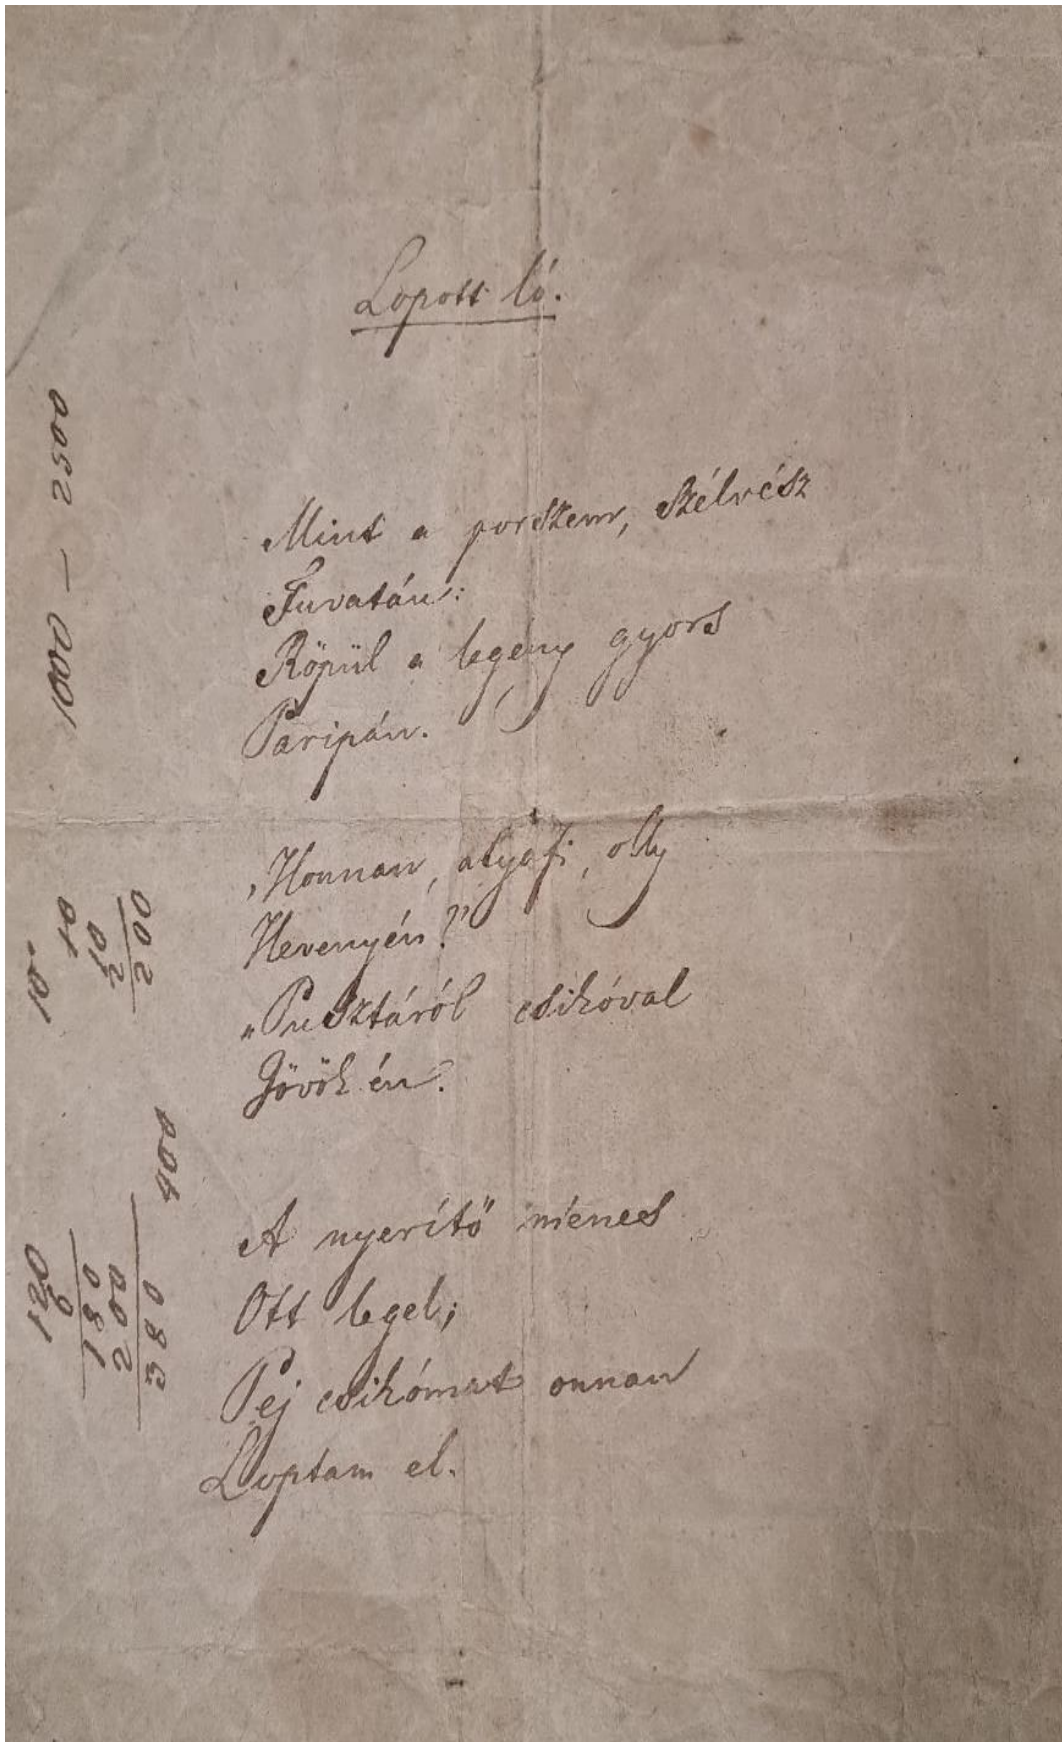 Lopott ló.
Mint a porszem, szélvész
Fuvatán:
Röpül a legény gyors
Paripán.
„Honnan, atyafi, olly
Hevenyén?”
„Pusztáról csikóval
Jövök én.
A nyerítő ménes
Ott legel;
Pej csikómat onnan
Loptam el.
1000 — 2500
10
10
20
200
400
120
180
200
380